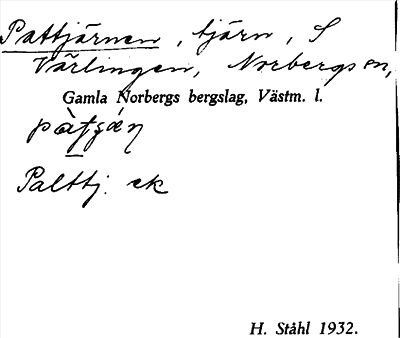 Pattjärnen, tjärn, S
Värlingen, Norbergs sn,
Gamla Norbergs bergslag, Västm. l.
Palttj. ek
H. Ståhl 1932.